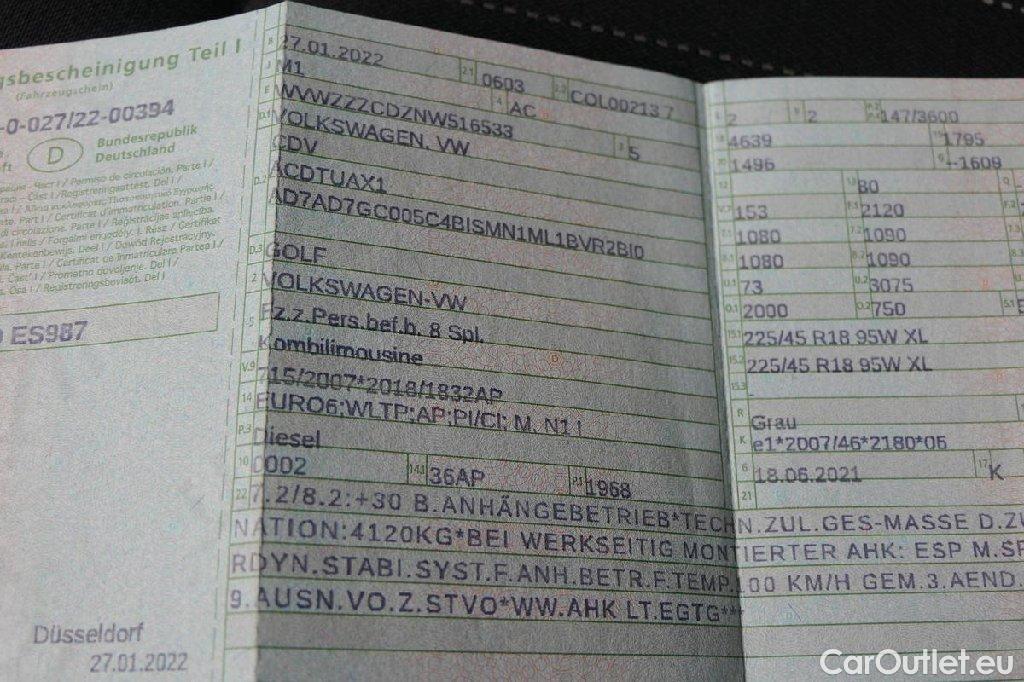 gsbescheinigung Teil I
(Fahrzeugschein)
-0-027/22-00394
D
Bundesrepublik
Deutschland
ES987
Düsseldorf
27.01.2022
27.01.2022 2.1 0603 2.2 COL00213 7
J M1 4 AC
E WVWZZZCDZNW516533 3 5
D.1 VOLKSWAGEN, VW
CDV
D.2 ACDTUAX1
AD7AD7GC005C4BISMN1ML1BVR2BI0
D.3 GOLF
2 VOLKSWAGEN-VW
5 Fz.z.Pers.bef.b. 8 Spl.
Kombilimousine
V.9 715/2007*2018/1832AP
14 EURO6;WLTP;AP;PI/CI; M, N1 I
P.3 Diesel
10 0002 14.1 36AP P.1 1968
22 7.2/8.2:+30 B.ANHÄNGEBETRIEB*TECHN.ZUL.GES-MASSE D.ZU
NATION:4120KG*BEI WERKSEITIG MONTIERTER AHK: ESP M.SP
RDYN.STABI.SYST.F.ANH.BETR.F.TEMP.100 KM/H GEM.3.AEND.
9.AUSN.VO.Z.STVO*WW.AHK LT.EGTG***
2 9 2 P.2 147/3600
18 4639 19 1795
20 1496 1609
12 13 80 Q
V.7 153 F.1 2120
7.1 1080 7.2 1090
8.1 1080 8.2 1090
U.1 73 U.2 3075
O.1 2000 O.2 750 S.1
15.1 225/45 R18 95W XL
15.2 225/45 R18 95W XL
15.3
R Grau
K e1*2007/46*2180*06
6 18.06.2021 17 K
21
CarOutlet.eu